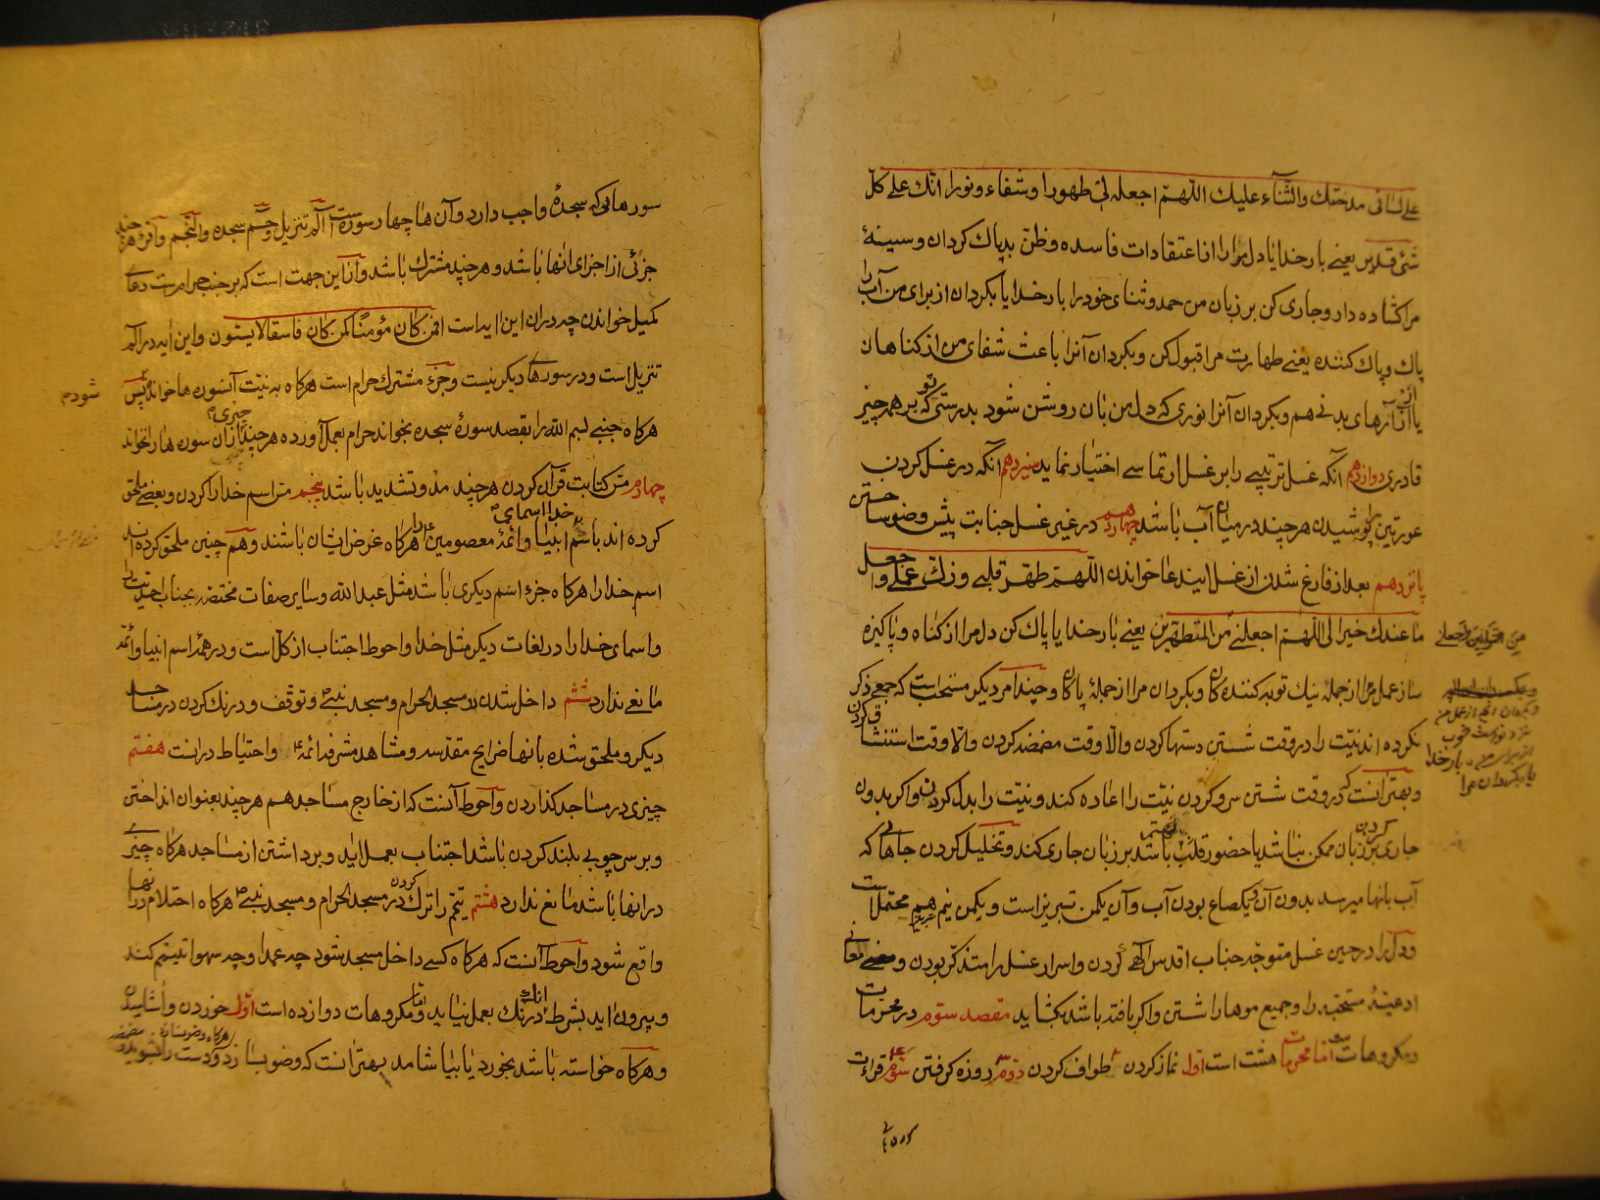 علی لسانی مدحتك والثنآء علیك اللّهمّ اجعله لی طهورا وشفاء ونورا انّك علی کلّ
شئ قدیر یعنی بار خدایا دل مرا از اعتقادات فاسده وظن بد پاك کردان وسینهٔ
مرا کشاده دار وجاری کن بر زبان من حمد وثنای خود را بار خدایا بکردان از برای من آب را
پاك وپاك کننده یعنی طهارت مرا قبول کن وبکردان آنرا باعث شفای من از کناهان
یا از آزارهای بدنی هم وبکردان آنرا نوری که دل من بان روشن شود بدرستی که تو بر همه چیز
قادری دوازدهم آنکه غسل ترتیبی را بر غسل ارتماسی اختیار نماید سیزدهم آنکه در غسل کردن
عورتین را پوشیدن هر چند در میان آب باشد چهاردهم در غیر غسل جنابت پیش وضو ساختن
پانزدهم بعد از فارغ شدن از غسل این دعا خواندن اللّهمّ طهّر قلبی وزكّ عملی واجعل
ما عندك خیرا لی اللّهمّ اجعلنی من المتطهّرین یعنی بار خدایا پاك کن دل مرا از کناه وپاکیزه
ساز عمل مرا از جملهٔ نیك توبه کننده کان وبکردان مرا از جملهٔ پاکان وچند امر دیکر مستحبّ است که جمعی ذکر
نکرده اند نیّت را در وقت شستن دستها کردن والّا وقت مضمضه کردن والّا وقت استنشاق کردن
وبهتر آنست که در وقت شستن سر وکردن نیّت را اعاده کند ونیّت را بدل کردن واکر بدون
جاری کردن بر زبان ممکن نباشد یا حضور قلب بهتر باشد بر زبان جاری کند وتخلیل کردن جاهائی که
آب بانها میرسد بدون آن ویکصاع بودن آب وآن یکمن تبریز است ویکمن نیم هم محتملست
ودل را در حین غسل متوجّه جناب اقدس الٓهی کردن واسرار غسل را متذکر بودن ومعنی معانی
ادعیهٔ مستحبّه را وجمیع موها را شستن واکر بافته باشد بکشاید مقصد سوّم در محرّمات
ومکروهات است امّا محرّمات هشت است اوّل نماز کردن طواف کردن دوم روزه کرفتن سوم قرائت
من التّوّابین واجعلنی
وبکردان انچه از عمل من
نزد تو است خوب
از برای من بار خدا
یا بکردان مرا
سوره
سورهائی که سجدهٔ واجب دارد وآن ها چهار سوره است الٓم تنزیل وحٓم سجده والنّجم واقرء هر چند
جزئی از اجزای انها باشد وهر چند مشترك باشد واز این جهت است که بر جنب حرامست دعای
کمیل خواندن چه در ان این ایه است افمن کان مؤمنًا کمن کان فاسقا لا یستون واین ایه در الٓم
تنزیل است ودر سورهای دیکر نیست وجزء مشترك حرام است هرکاه به نیّت آنسوره ها خواند پس
هرکاه جنبی بسم الله را بقصد سورهٔ سجده بخواند حرام بعمل آورده هر چند چیزی از آن سوره ها را نخواند
چهارم مسّ کتابت قرآن کردن هر چند مدّ وتشدید باشد پنجم مسّ اسم خدا را کردن وبعضی ملحق
کرده اند باسم خدا اسمای انبیا وائمّهٔ معصومین را هرکاه غرض ایشان باشند وهم چنین ملحق کرده اند
اسم خدا را هرکاه جزء اسم دیکری باشد مثل عبد الله وسایر صفات مختصّه بجناب احدیّت را
واسمای خدا را در لغات دیکر مثل خدا واحوط اجتناب از کلّ است ودر هذا اسم انبیا وائمّه
مانعی ندارد ششم داخل شدن در مسجد الحرام ومسجد نبی وتوقّف ودرنك کردن در مساجد
دیکر وملحق شده بانها ضرایح مقدّسه ومشاهد مشرفه ائمّه واحتیاط در انست هفتم
چیزی در مساجد کذاردن واحوط آنست که از خارج مساجد هم هر چند بعنوان انداختن
وبر سر چوبی بلند کردن باشد اجتناب بعمل اید وبرداشتن از مساجد هرکاه چیزی
در انها باشد مانع ندارد هشتم تیمّم را ترك کردن در مسجد الحرام ومسجد نبی هرکاه احتلام در انها
واقع شود واحوط آنست که هرکاه کسی داخل مسجد شود چه عمدا وچه سهوا تیمّم کند
وبیرون اید بشرط آنکه درنك بعمل نیاید وامّا مکروهات دوازده است اوّل خوردن واشامیدن
وهرکاه خواسته باشد بخورد یا بیاشامد بهتر انست که وضو بسازد ودست را بشوید
شود م